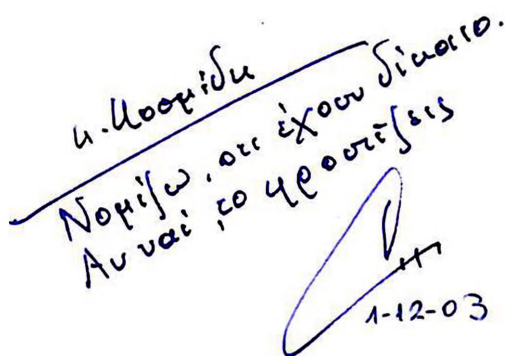 κ. Κοσμίδη
Νομίζω, οτι έχουν δίκαιο.
Αν ναί, το φροντίζεις
1-12-03